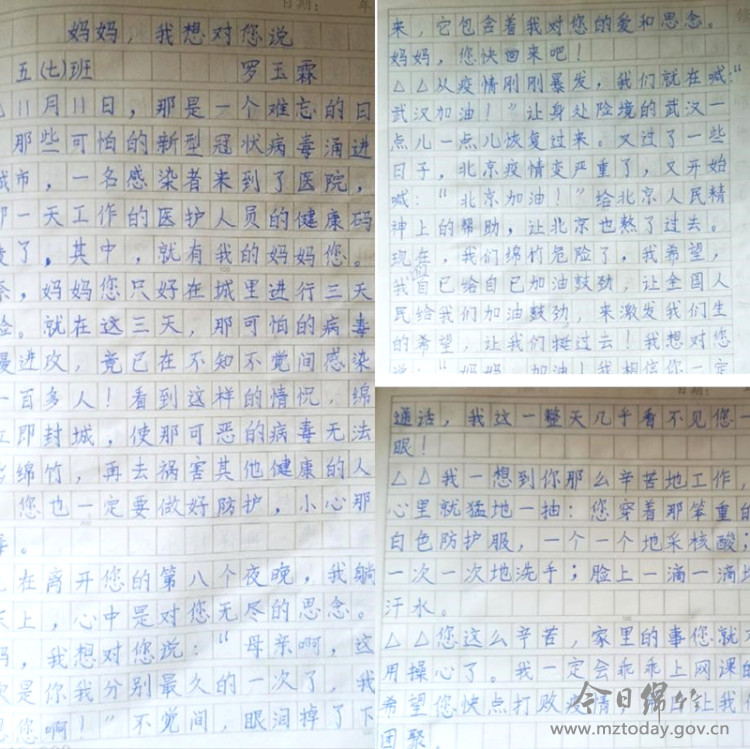 日期：
年
妈妈，我想对您说
五(七)班 罗玉霖
△11月11日，那是一个难忘的日
那些可怕的新型冠状病毒涌进
城市，一名感染者来到了医院，
那一天工作的医护人员的健康码
变了，其中，就有我的妈妈您。
奈，妈妈您只好在城里进行三天
。就在这三天，那可怕的病毒
漫进攻，竟已在不知不觉间感染
一百多人！看到这样的情况，绵
立即封城，使那可恶的病毒无法
绵竹，再去祸害其他健康的人
您也一定要做好防护，小心那
毒。
在离开您的第八个夜晚，我躺
床上，心中是对您无尽的思念。
妈，我想对您说：“母亲啊，这
次是你我分别最久的一次了，我
想您啊！”不觉间，眼泪掉了下
来，它包含着我对您的爱和思念。
妈妈，您快回来吧！
△△从疫情刚刚暴发，我们就在喊：“
武汉加油！”让身处险境的武汉一
点儿一点儿恢复过来。又过了一些
日子，北京疫情变严重了，又开始
喊：“北京加油！”给北京人民精
神上的帮助，让北京也熬了过去。
现在，我们绵竹危险了，我希望，
我们自己给自己加油鼓劲，让全国人
民给我们加油鼓劲，来激发我们生
的希望，让我们挺过去！我想对您
说：“妈妈，加油！我相信你一定
日期：
通话，我这一整天几乎看不见您一
眼！
△△我一想到你那么辛苦地工作，
心里就猛地一抽：您穿着那笨重的
白色防护服，一个一个地采核酸；
一次一次地洗手；脸上一滴一滴地
汗水。
△△您这么辛苦，家里的事您就不
用操心了。我一定会乖乖上网课的
希望您快点打败疫情，早日让我们
团聚。
今日绵竹
www.mztoday.gov.cn